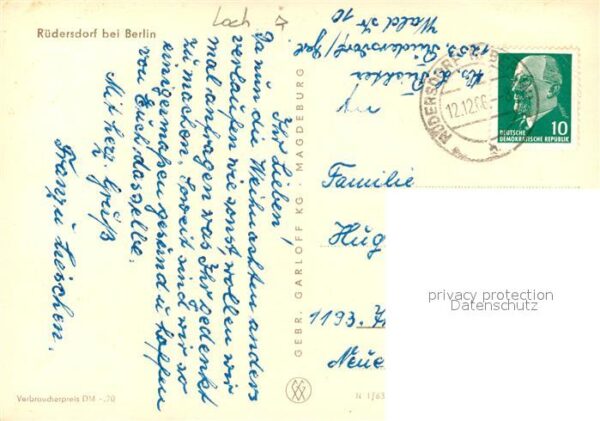 Loch
Rüdersdorf bei Berlin
Ihr Lieben!
Da nun die Weihnachten anders
verlaufen wie sonst, wollen wir
mal anfragen was Ihr gedenkt
zu machen. Soweit sind wir so
einigermaßen gesund u. hoffen
von Euch dasselbe.
Mit herz. Grüß
Franz u. Lieschen.
Verbraucherpreis DM -,20
GEBR. GARLOFF KG · MAGDEBURG
N 1/63
1253 Rüdersdorf
Wald Str 10
RÜDERSDORF
12.12.66
DEUTSCHE
DEMOKRATISCHE REPUBLIK
10
An
Familie
Hug
1193
Neue
privacy protection
Datenschutz